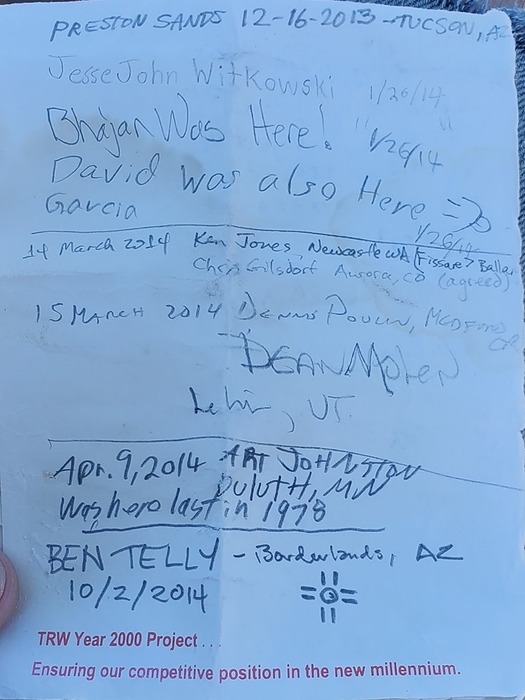 PRESTON SANDS 12-16-2013 - TUCSON, AZ
Jesse John Witkowski 1/26/14
Bhajan Was Here! 1/26/14
David was also Here =>
Garcia 1/26/14
14 March 2014 Ken Jones, Newcastle WA (Fissure > Balla
Chris Gilsdorf Aurora, CO (agreed)
15 MARCH 2014 DENNIS POULIN, MEDFORD
OR
DEAN MOLEN
Lehi, UT.
Apr. 9, 2014 ART JOHNSTON
DULUTH, MN
Was here last in 1978
BEN TELLY - Borderlands, AZ
10/2/2014
TRW Year 2000 Project . . .
Ensuring our competitive position in the new millennium.